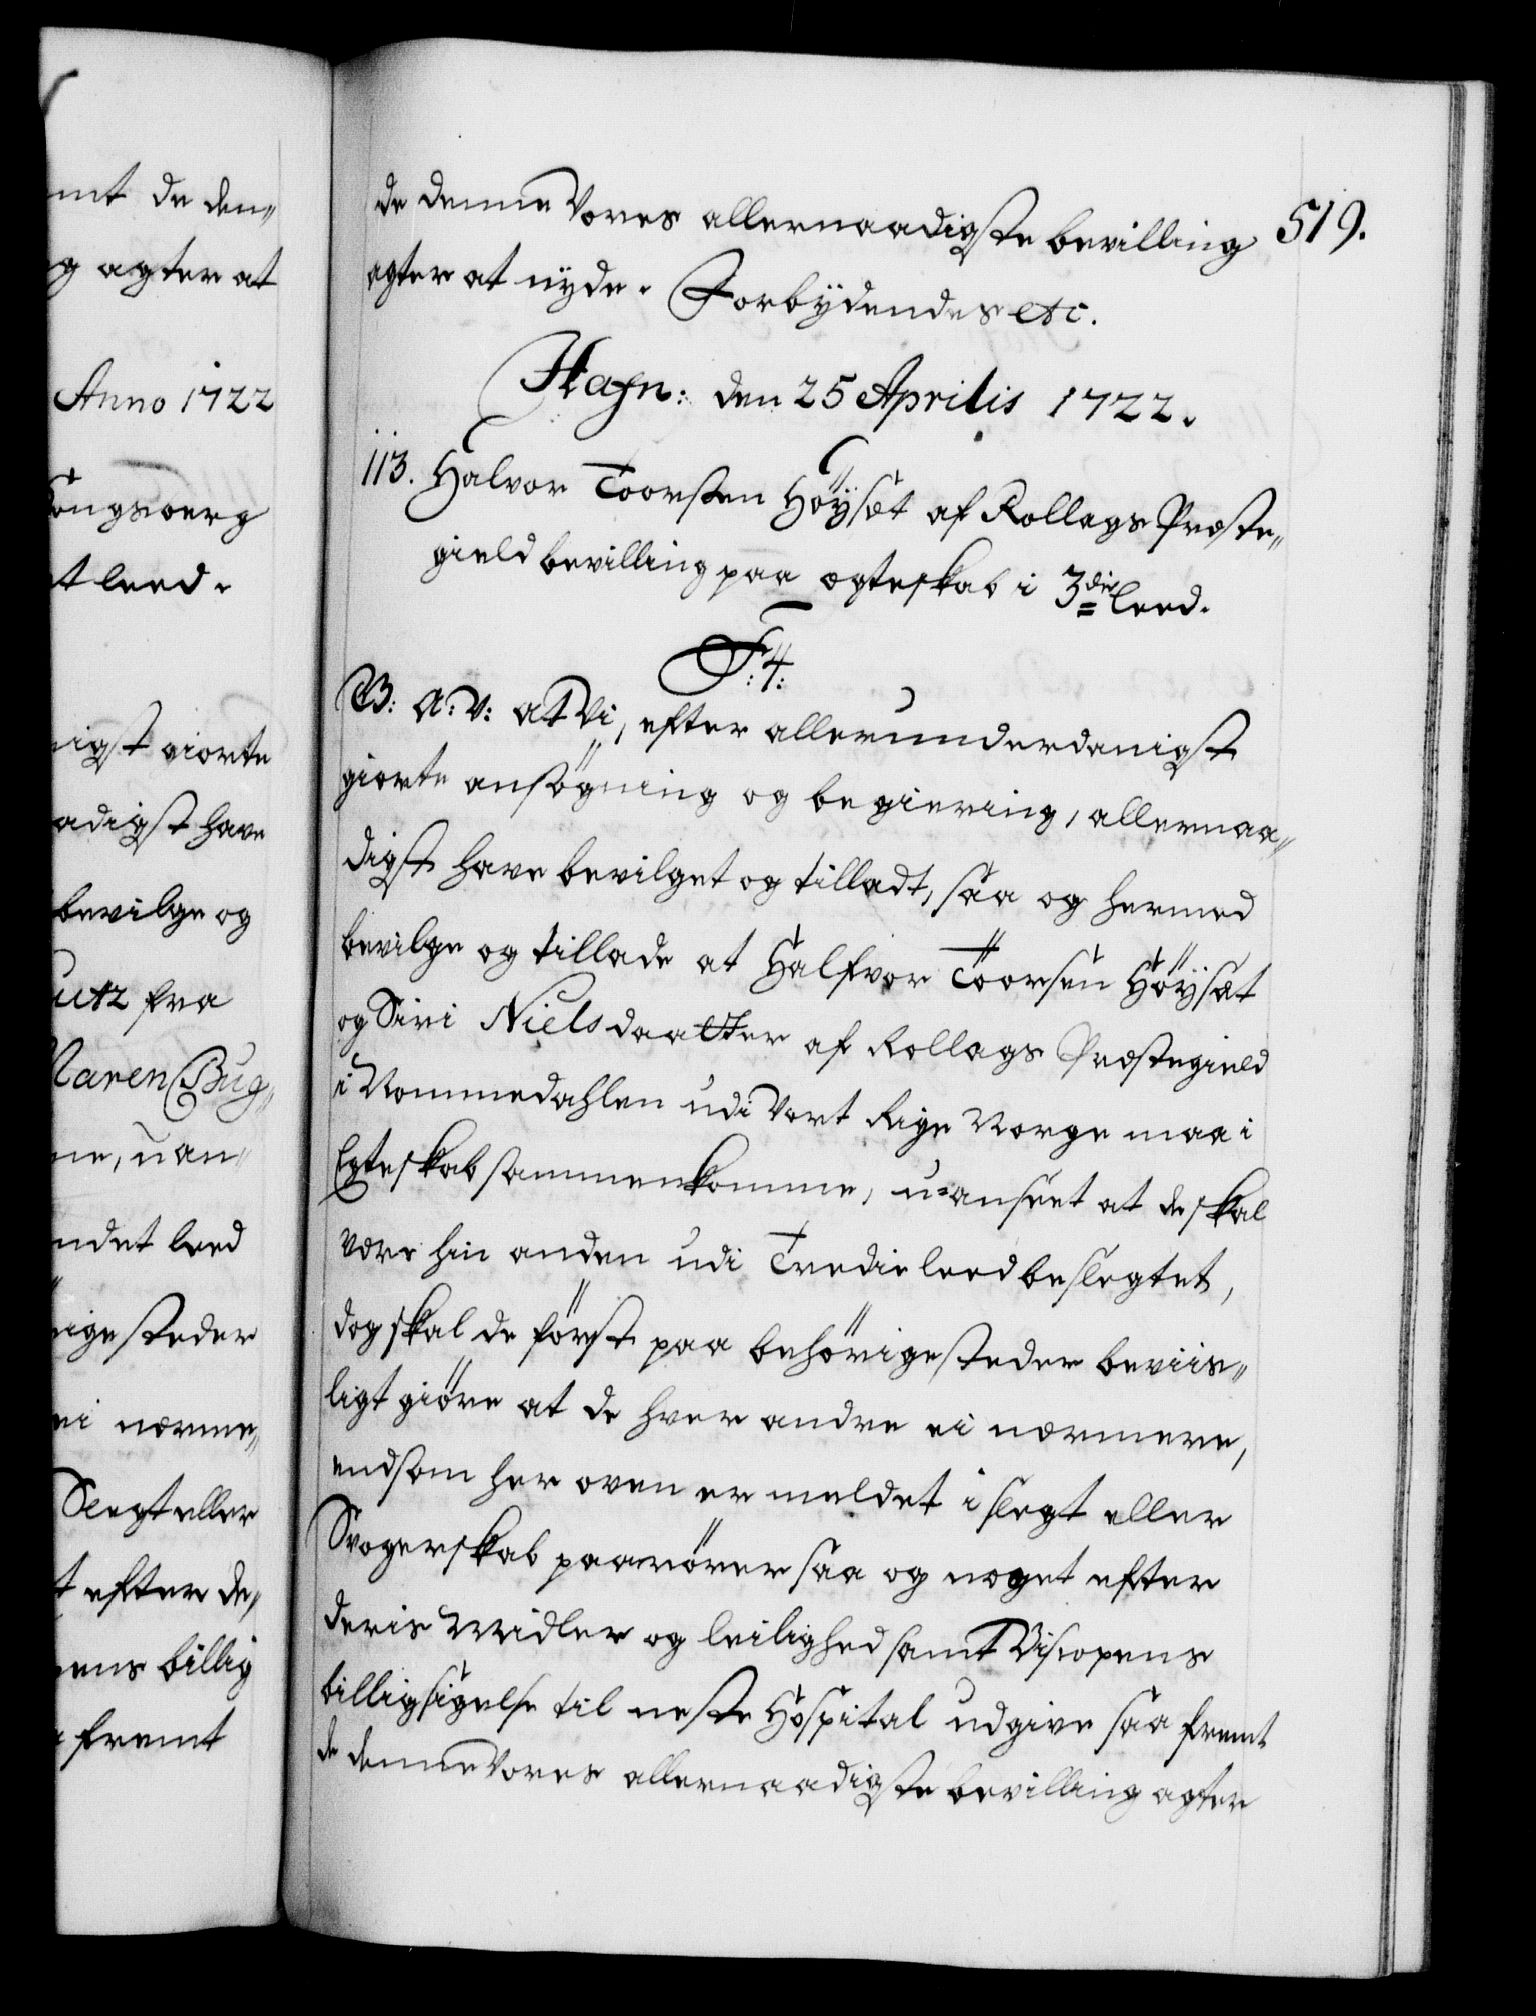 mt de den„
g agter at
Anno 1722
Kongsberg
t leed.
nigst giorte
adigst have
bevilge og
utz fra
Maren Bug„
ne, uan„
ndet leed
rige steder
ei nærme„
Slegt eller
t efter de„
ens billig
fremt
519.
de denne Vores allernaadigste bevilling
agter at nyde. Forbydendes etc.
Hafn: den 25 Aprilis 1722.
113. Halvor Toorsen Höÿset af Rollags Præste„
gield bevilling paa ægteskab i 3die leed.
F: 4:
B: A: V: at Vi, efter allerunderdanigst
giorte ansögning og begiering, allernaa„
digst have bevilget og tilladt, saa og hermed
bevilge og tillade at Halfvor Toorsen Höÿset
og Siri Nielsdaatter af Rollags Præstegield
i Nommedahlen udi Vort Rige Norge maa i
Egteskab sammenkomme, u-anseet at de skal
være hin anden udi Tredie leed beslegtet,
dog skal de först paa behörige steder beviis„
ligt giöre at de hver andre ei nærmere,
end som her oven er meldet i slegt eller
Svogerskab paarörer saa og noget efter
deris Midler og leilighed samt Biscopens
billigsigelse til neste Hospital udgive saa fremt
de denne Vores allernaadigste bevilling agter